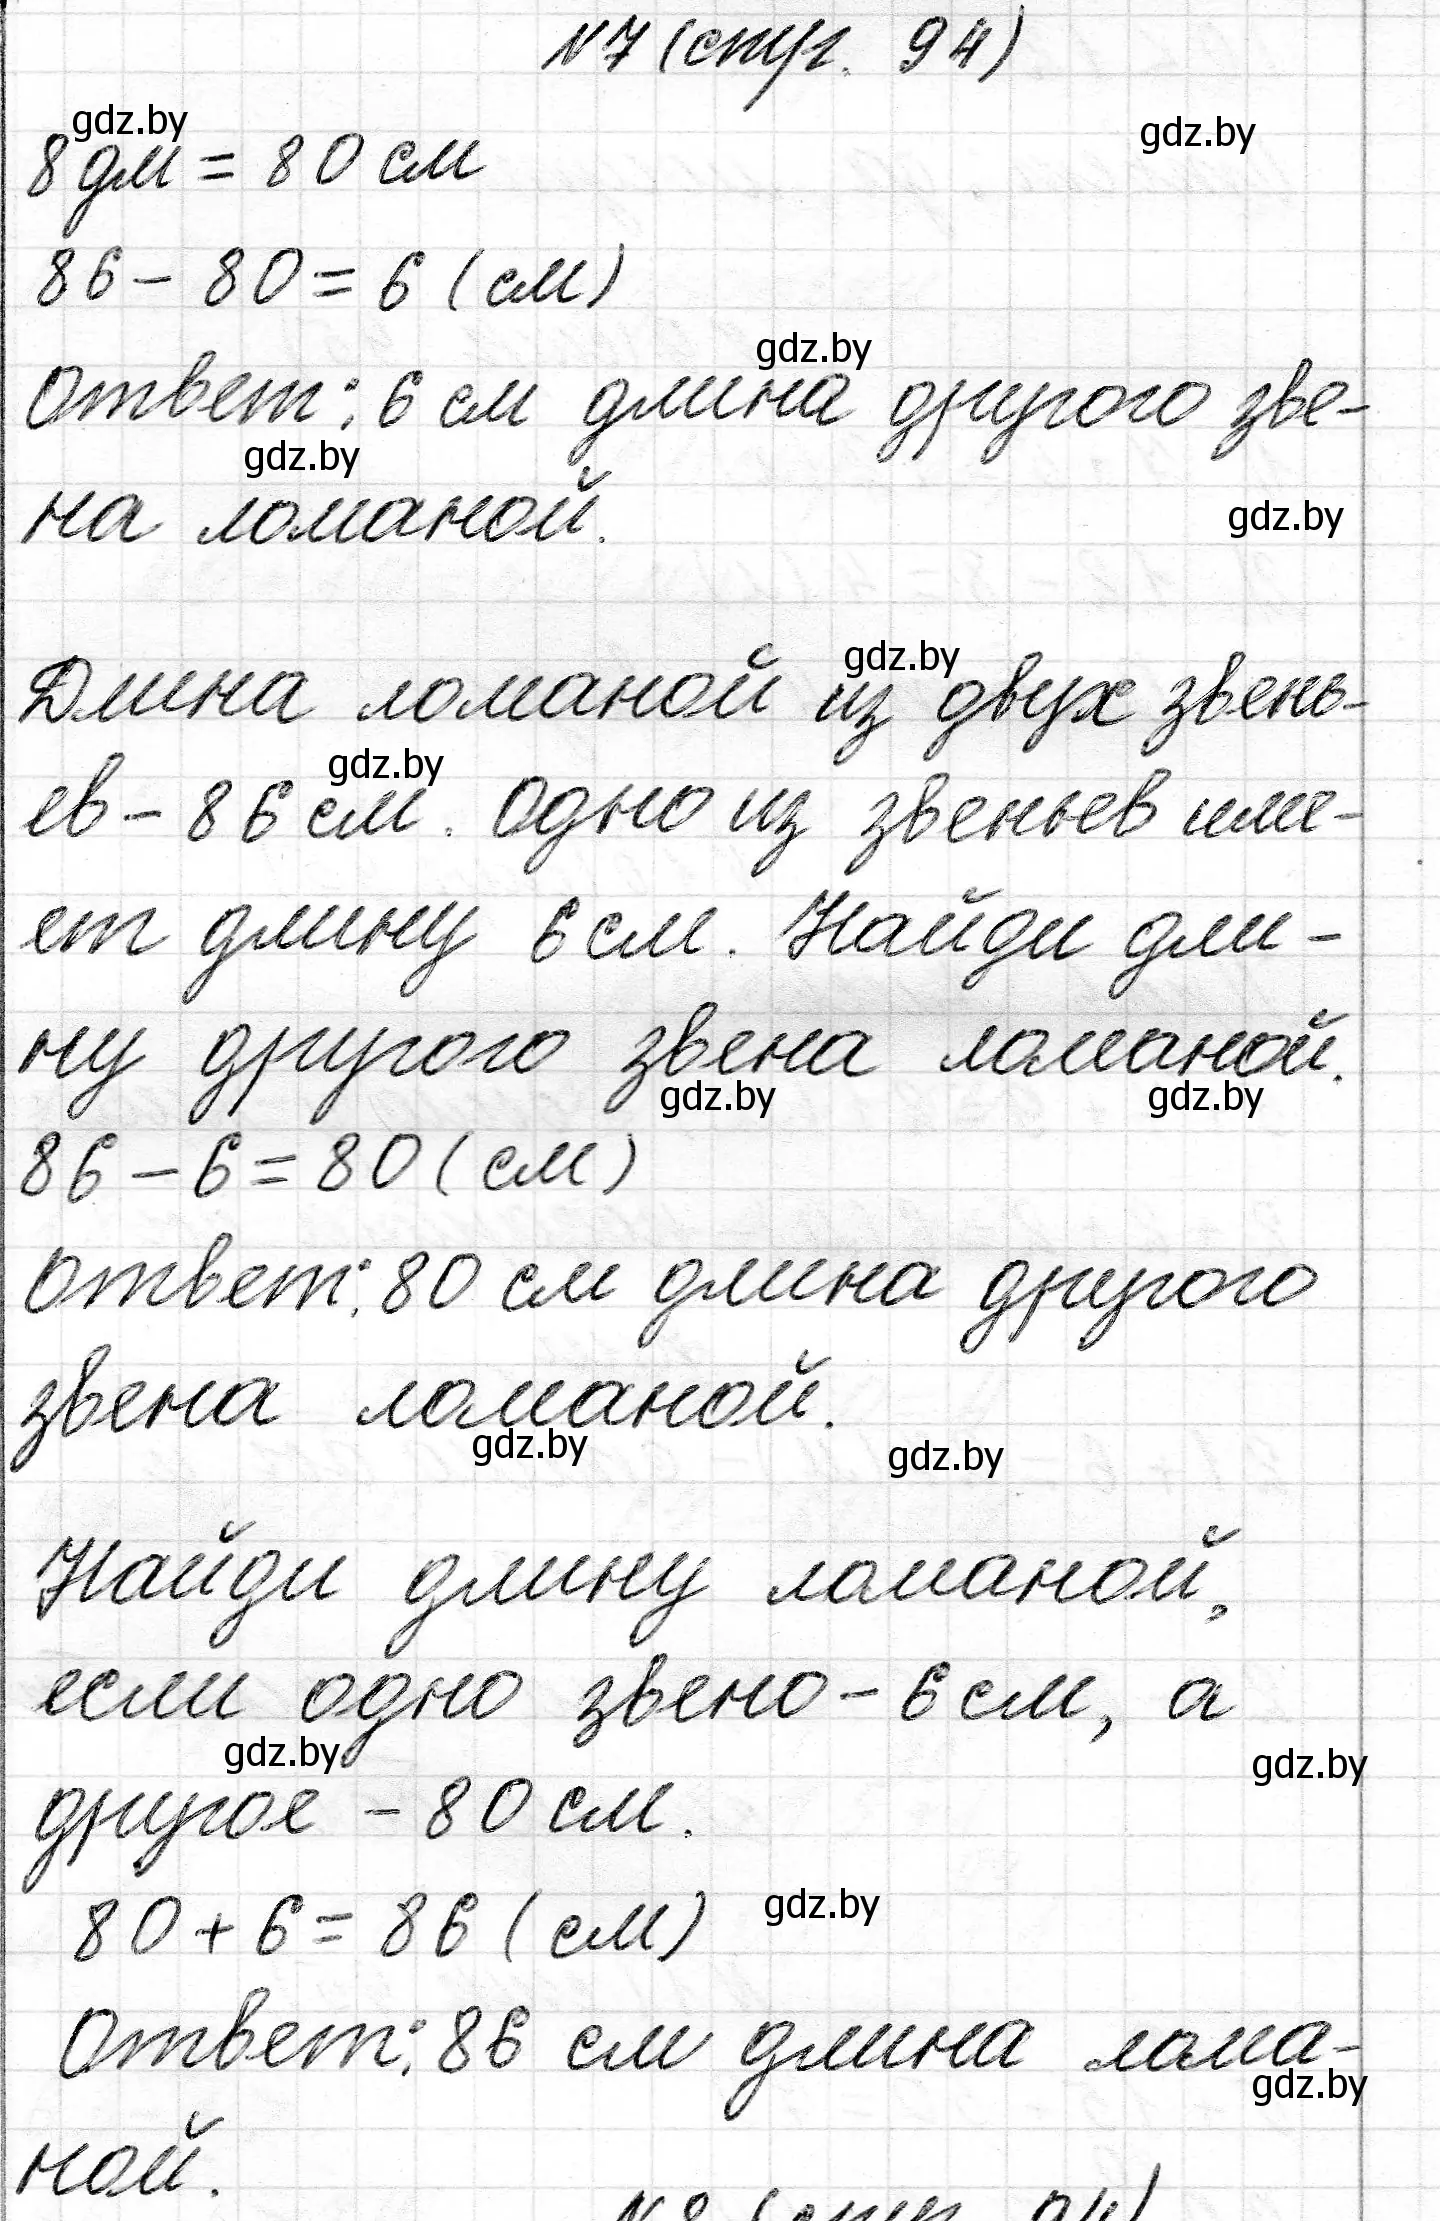 №7 (стр. 94)
gdz.by
gdz.by
8 дм = 80 см
86 - 80 = 6 (см)
gdz.by
Ответ: 6 см длина другого зве-
gdz.by
на ломаной.
gdz.by
gdz.by
Длина ломаной из двух звень-
gdz.by
ев - 86 см. Одно из звеньев име-
ет длину 6 см. Найди дли-
ну другого звена ломаной.
gdz.by
gdz.by
86 - 6 = 80 (см)
Ответ: 80 см длина другого
звена ломаной.
gdz.by
gdz.by
Найди длину ломаной,
если одно звено - 6 см, а
gdz.by
gdz.by
другое - 80 см.
80 + 6 = 86 (см)
gdz.by
Ответ: 86 см длина лома-
gdz.by
ной.
№8 (стр. 94)